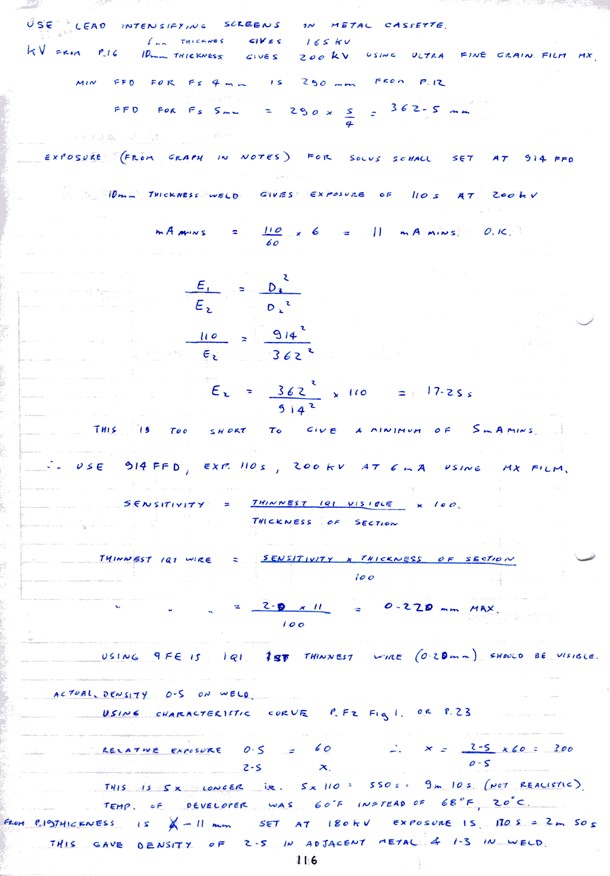 USE LEAD INTENSIFYING SCREENS IN METAL CASSETTE.
6mm THICKNES GIVES 165 KV
KV FROM P.16 10mm THICKNESS GIVES 200 KV USING ULTRA FINE GRAIN FILM MX.
MIN FFD FOR FS 4mm IS 290 mm FROM P.12
FFD FOR FS 5mm = 290 x 5/4 = 362-5 mm
EXPOSURE (FROM GRAPH IN NOTES) FOR SOLUS SCHALL SET AT 914 FFD
10mm THICKNESS WELD GIVES EXPOSURE OF 110 s AT 200 KV
mA MINS = 110/60 x 6 = 11 mA MINS. O.K.
E1/E2 = D1²/D2²
110/E2 = 914²/362²
E2 = 362²/914² x 110 = 17-25s
THIS IS TOO SHORT TO GIVE A MINIMUM OF 5 mA MINS.
∴ USE 914 FFD, EXP. 110 s, 200 KV AT 6 mA USING MX FILM.
SENSITIVITY = THINNEST IQI VISIBLE x 100.
THICKNESS OF SECTION
THINNEST IQI WIRE = SENSITIVITY x THICKNESS OF SECTION
100
" " " = 2-0 x 11 = 0-220 mm MAX.
100
USING 9FE15 IQI 1ST THINNEST WIRE (0-20mm) SHOULD BE VISIBLE.
ACTUAL DENSITY 0-5 ON WELD.
USING CHARACTERISTIC CURVE P.F2 Fig 1. OR P.23
RELATIVE EXPOSURE 0-5 = 60 ∴ x = 2-5 x 60 = 300
2-5 x. 0-5
THIS IS 5x LONGER ie. 5 x 110 = 550 s = 9m 10s. (NOT REALISTIC).
TEMP. OF DEVELOPER WAS 60°F INSTEAD OF 68°F, 20°C.
FROM P.19 THICKNESS IS - 11 mm SET AT 180 KV EXPOSURE IS 170 s = 2m 50s
THIS GAVE DENSITY OF 2-5 IN ADJACENT METAL & 1-3 IN WELD.
116